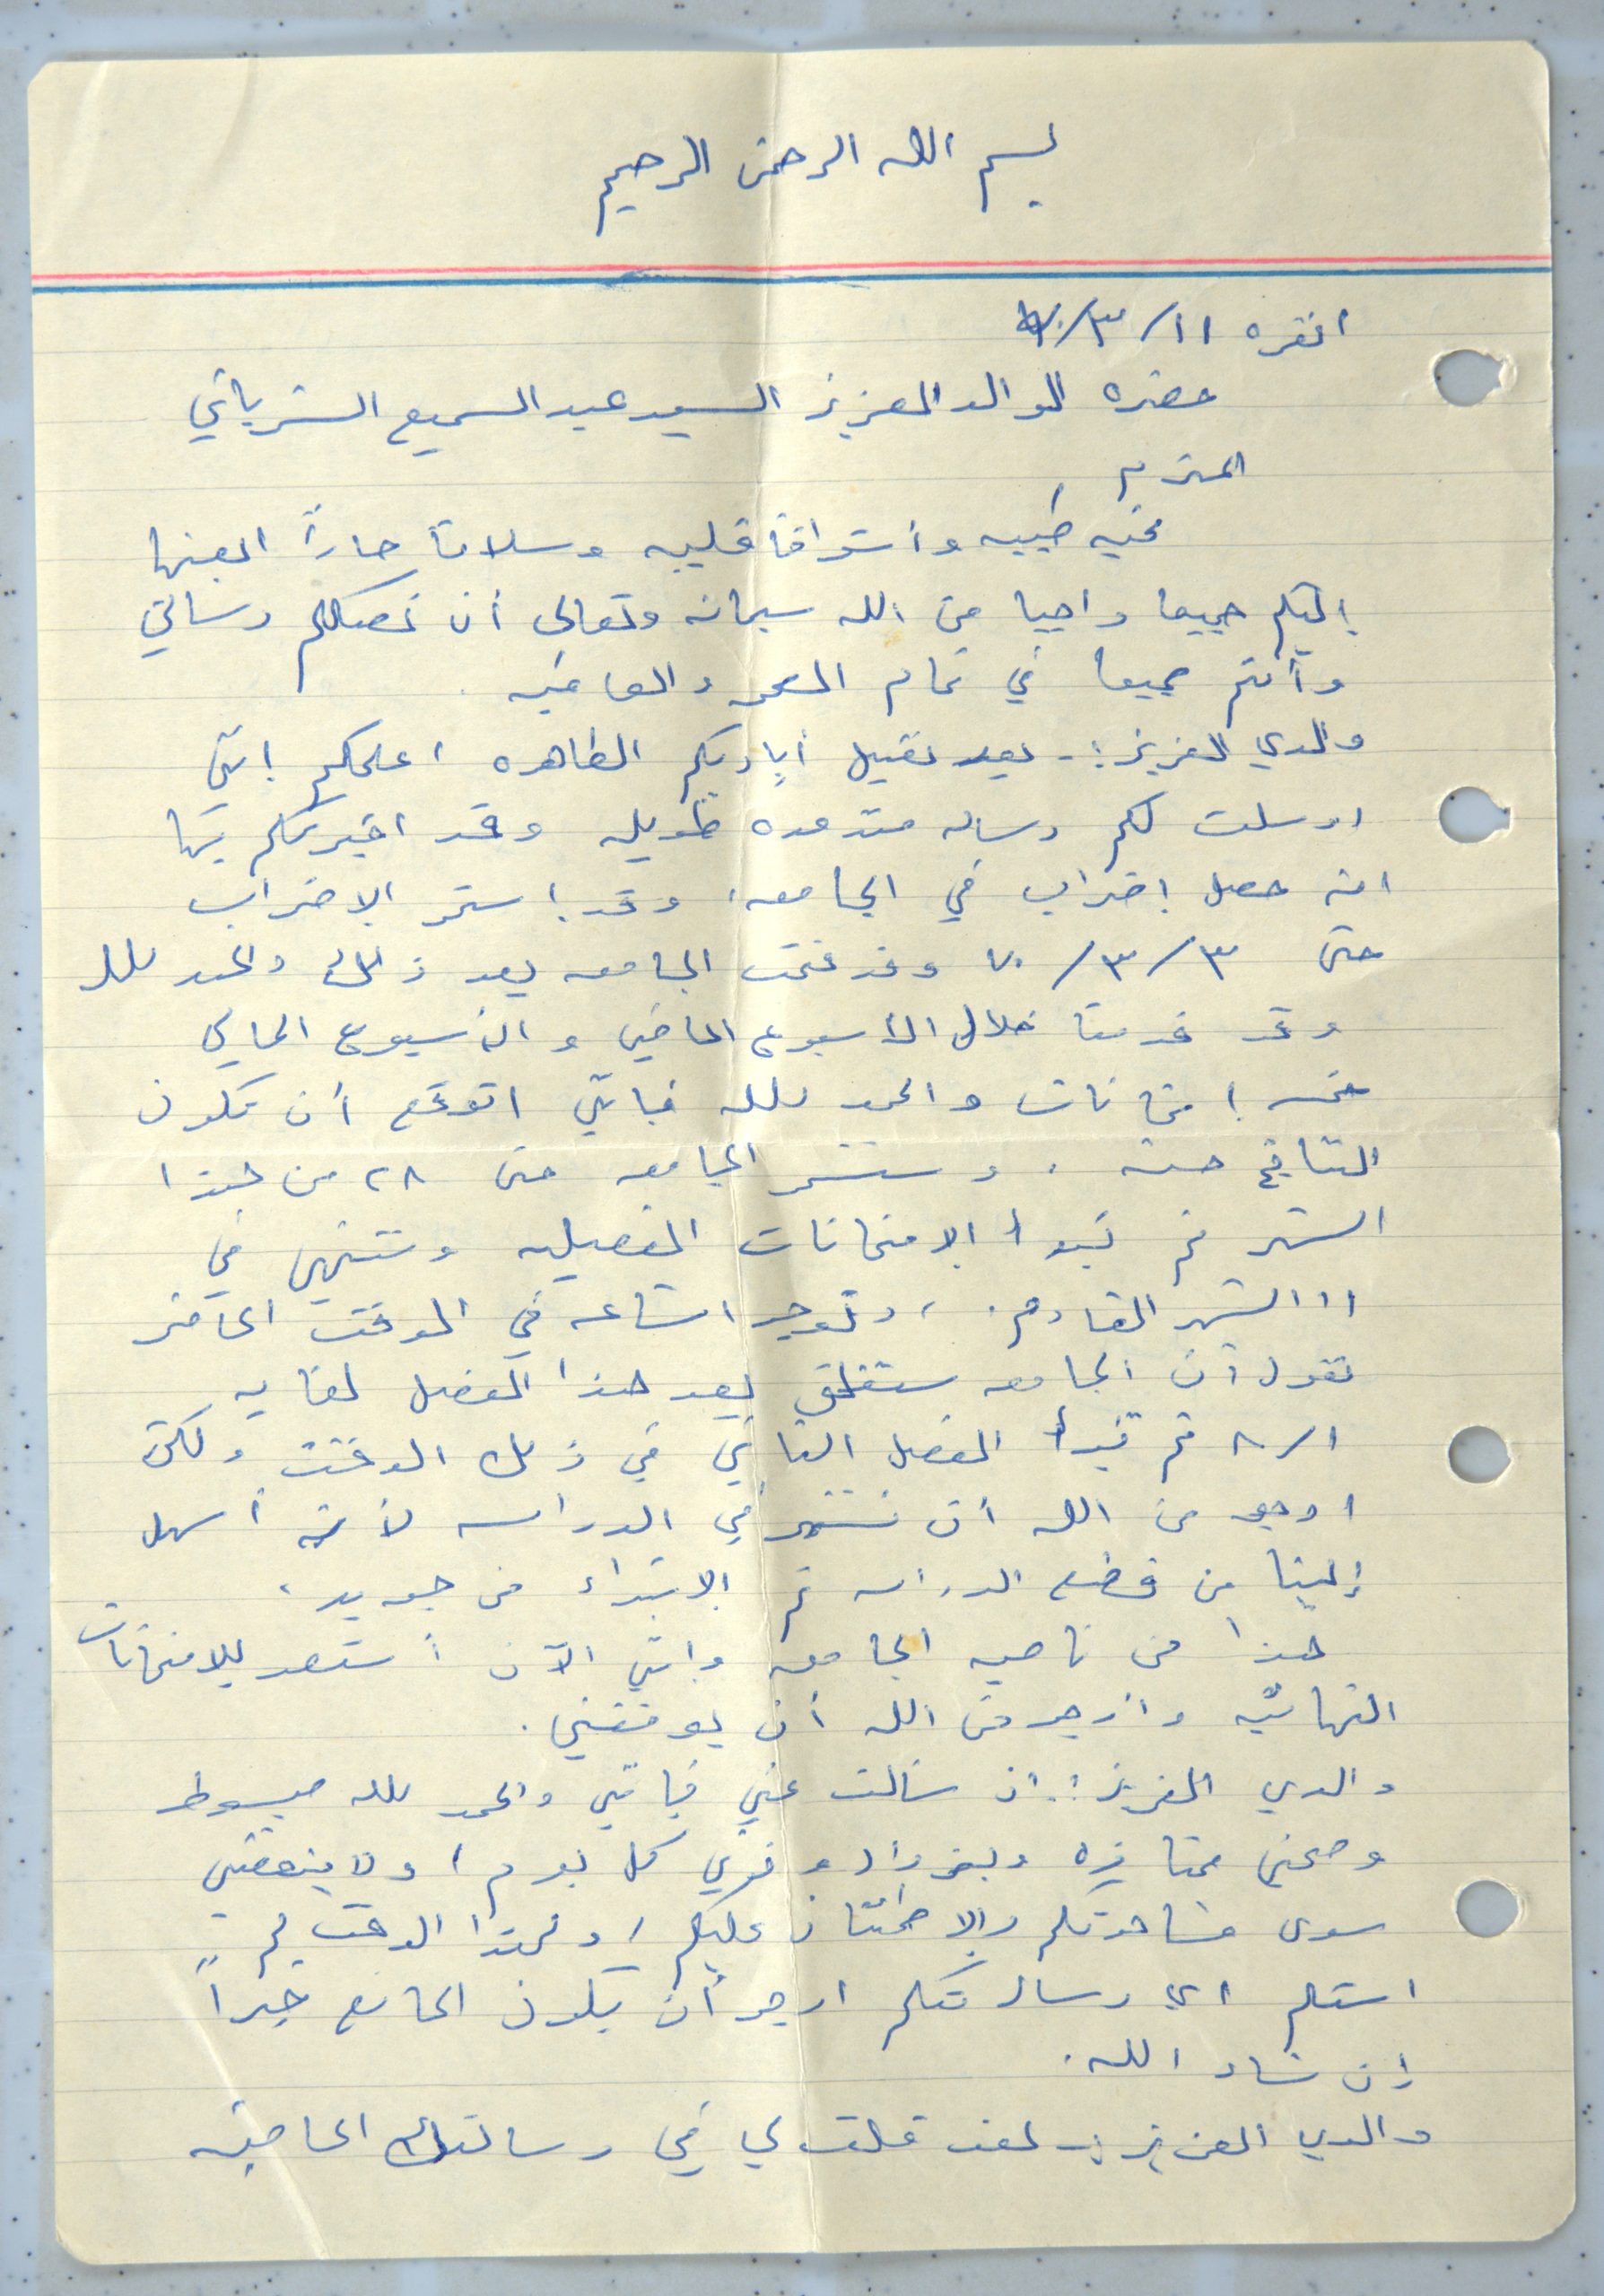 بسم الله الرحمن الرحيم
انقره ١١/٣/٧٠
حضره الوالد العزيز السيد عبد السميع الشرباتي
المحترم
تحيه طيبه وأشواقا قلبيه وسلاما حاراً ابعثها
إليكم جميعا راجيا من الله سبحانه وتعالى أن تصلكم رسالتي
وأنتم جميعا في تمام الصحه والعافيه .
والدي العزيز :- بعد تقبيل أياديكم الطاهره اعلمكم إنني
ارسلت لكم رساله منذ مده طويله وقد اخبرتكم بها
انه حصل إضراب في الجامعه ، وقد إستمر الاضراب
حتى ٣/٣/٧٠ وقد فتحت الجامعه بعد ذلك والحمد لله
وقد قدمنا خلال الأسبوع الماضي والأسبوع الحالي
خمسه إمتحانات والحمد لله فإنني اتوقع أن تكون
النتائج حسنه . وستستمر الجامعه حتى ٢٨ من هذا
الشهر ثم تبدأ الامتحانات الفصليه وستنتهي في
١١ الشهر القادم . ، وتوجد اشاعه في الوقت الحاضر
تقول أن الجامعه ستغلق بعد هذا الفصل لغايه
١/٨ ثم تبدأ الفصل الثاني في ذلك الوقت ولكن
ارجو من الله أن نستمر في الدراسه لأنه أسهل
إلينا من قطع الدراسه ثم الابتداء من جديد ،
هذا من ناحيه الجامعه وإنني الآن أستعد للامتحانات
النهائيه وأرجو من الله أن يوفقني .
والدي العزيز :. إن سألت عني فإنني والحمد لله مبسوط
وصحتي ممتازه وبغزاره كل يوم ، ولا ينقصني
سوى مشاهدتكم والاطمئنان عليكم ، ولهذا الوقت لم
استلم اي رساله منكم ارجو أن يكون المانع خيراً
إن شاء الله .
والدي العزيز :- لقد قلت لي في رسالتك الماضيه